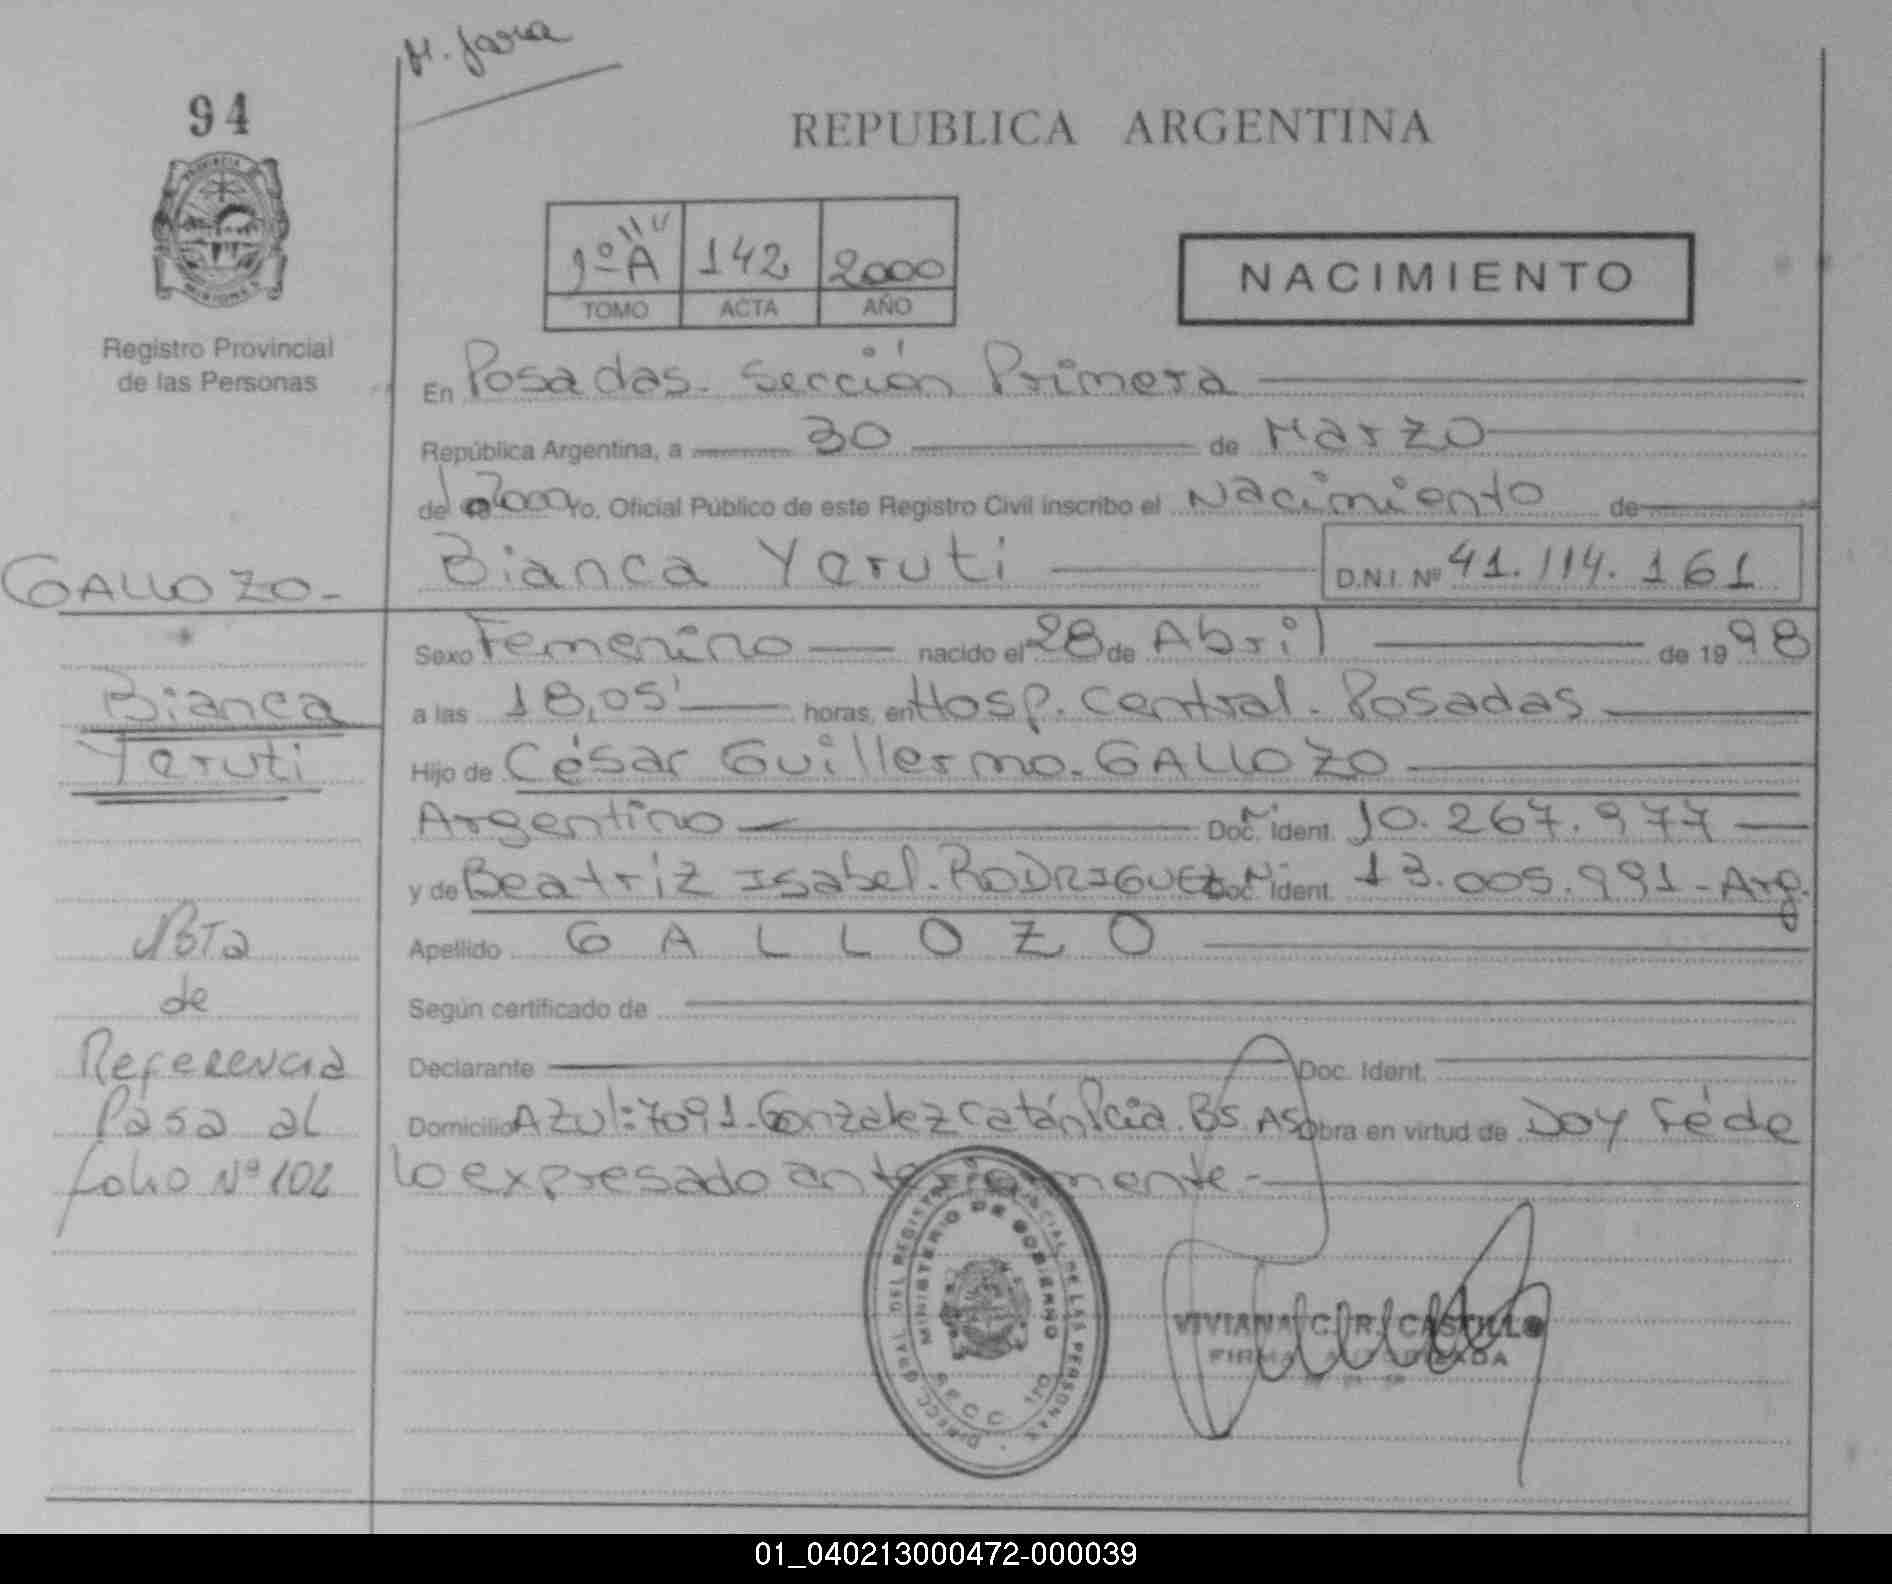 M. Jara
94
REPUBLICA ARGENTINA
1º "A" 142 2000
TOMO ACTA AÑO
NACIMIENTO
PROVINCIA
MISIONES
Registro Provincial
de las Personas
En Posadas. Sección Primera
República Argentina, a 30 de Marzo
del 2000 Yo. Oficial Público de este Registro Civil inscribo el Nacimiento de
Bianca Yeruti D.N.I. Nº 41.114.161
GALLOZO-
Bianca
Yeruti
Sexo Femenino nacido el 28 de Abril de 1998
a las 18,05' horas, en Hosp. Central. Posadas
Hijo de César Guillermo. GALLOZO
Argentino Doc. Ident. 10.267.977
y de Beatriz Isabel. RODRIGUEZ Doc. Ident. 13.005.991-Arg.
Apellido GALLOZO
Según certificado de
Declarante Doc. Ident.
Domicilio Azul: 7091. Gonzalez Catán Pcia. Bs. As Obra en virtud de Doy Fé de
lo expresado anteriormente.-
Nota
de
Referencia
Pasa al
folio Nº 102
DIRECC. GRAL DEL REGISTRO PROVINCIAL DE LAS PERSONAS
MINISTERIO DE GOBIERNO
SECC. 1RO
VIVIANA C. R. CASTILLO
FIRMA AUTORIZADA
01_040213000472-000039